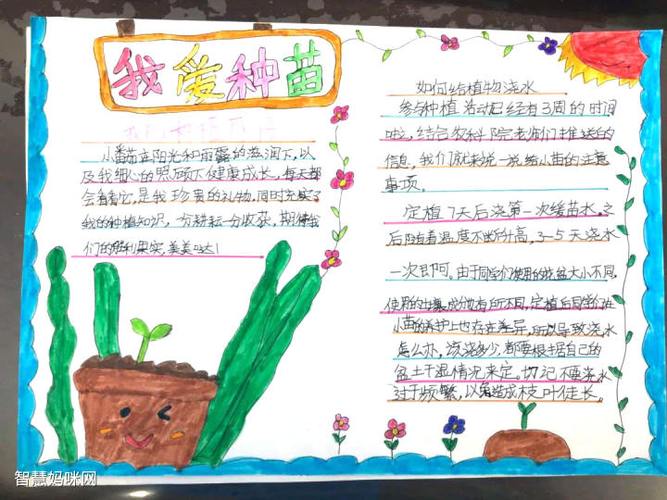 我爱种苗
小番茄在阳光和雨露的滋润下,以
及我细心的照顾下健康成长,每天都
会看看它,是我珍贵的礼物,同时充实了
我的种植知识,一分耕耘一分收获,期待我
们的胜利果实,美美哒!
如何给植物浇水
参与种植活动已经有3周的时间
啦,结合农科院老师们推送的
信息,我们就来说一说给小苗的注意
事项。
定植7天后浇第一次缓苗水,之
后随着温度不断升高,3~5天浇水
一次即可。由于同学们使用的花盆大小不同,
使用的土壤成份有所不同,定植后同学们在
小苗的养护上也存在差异,所以导致浇水
怎么办,该浇多少,都要根据自己的
盆土干湿情况来定,切记不要浇水
过于频繁,以免造成枝叶徒长。
智慧妈咪网